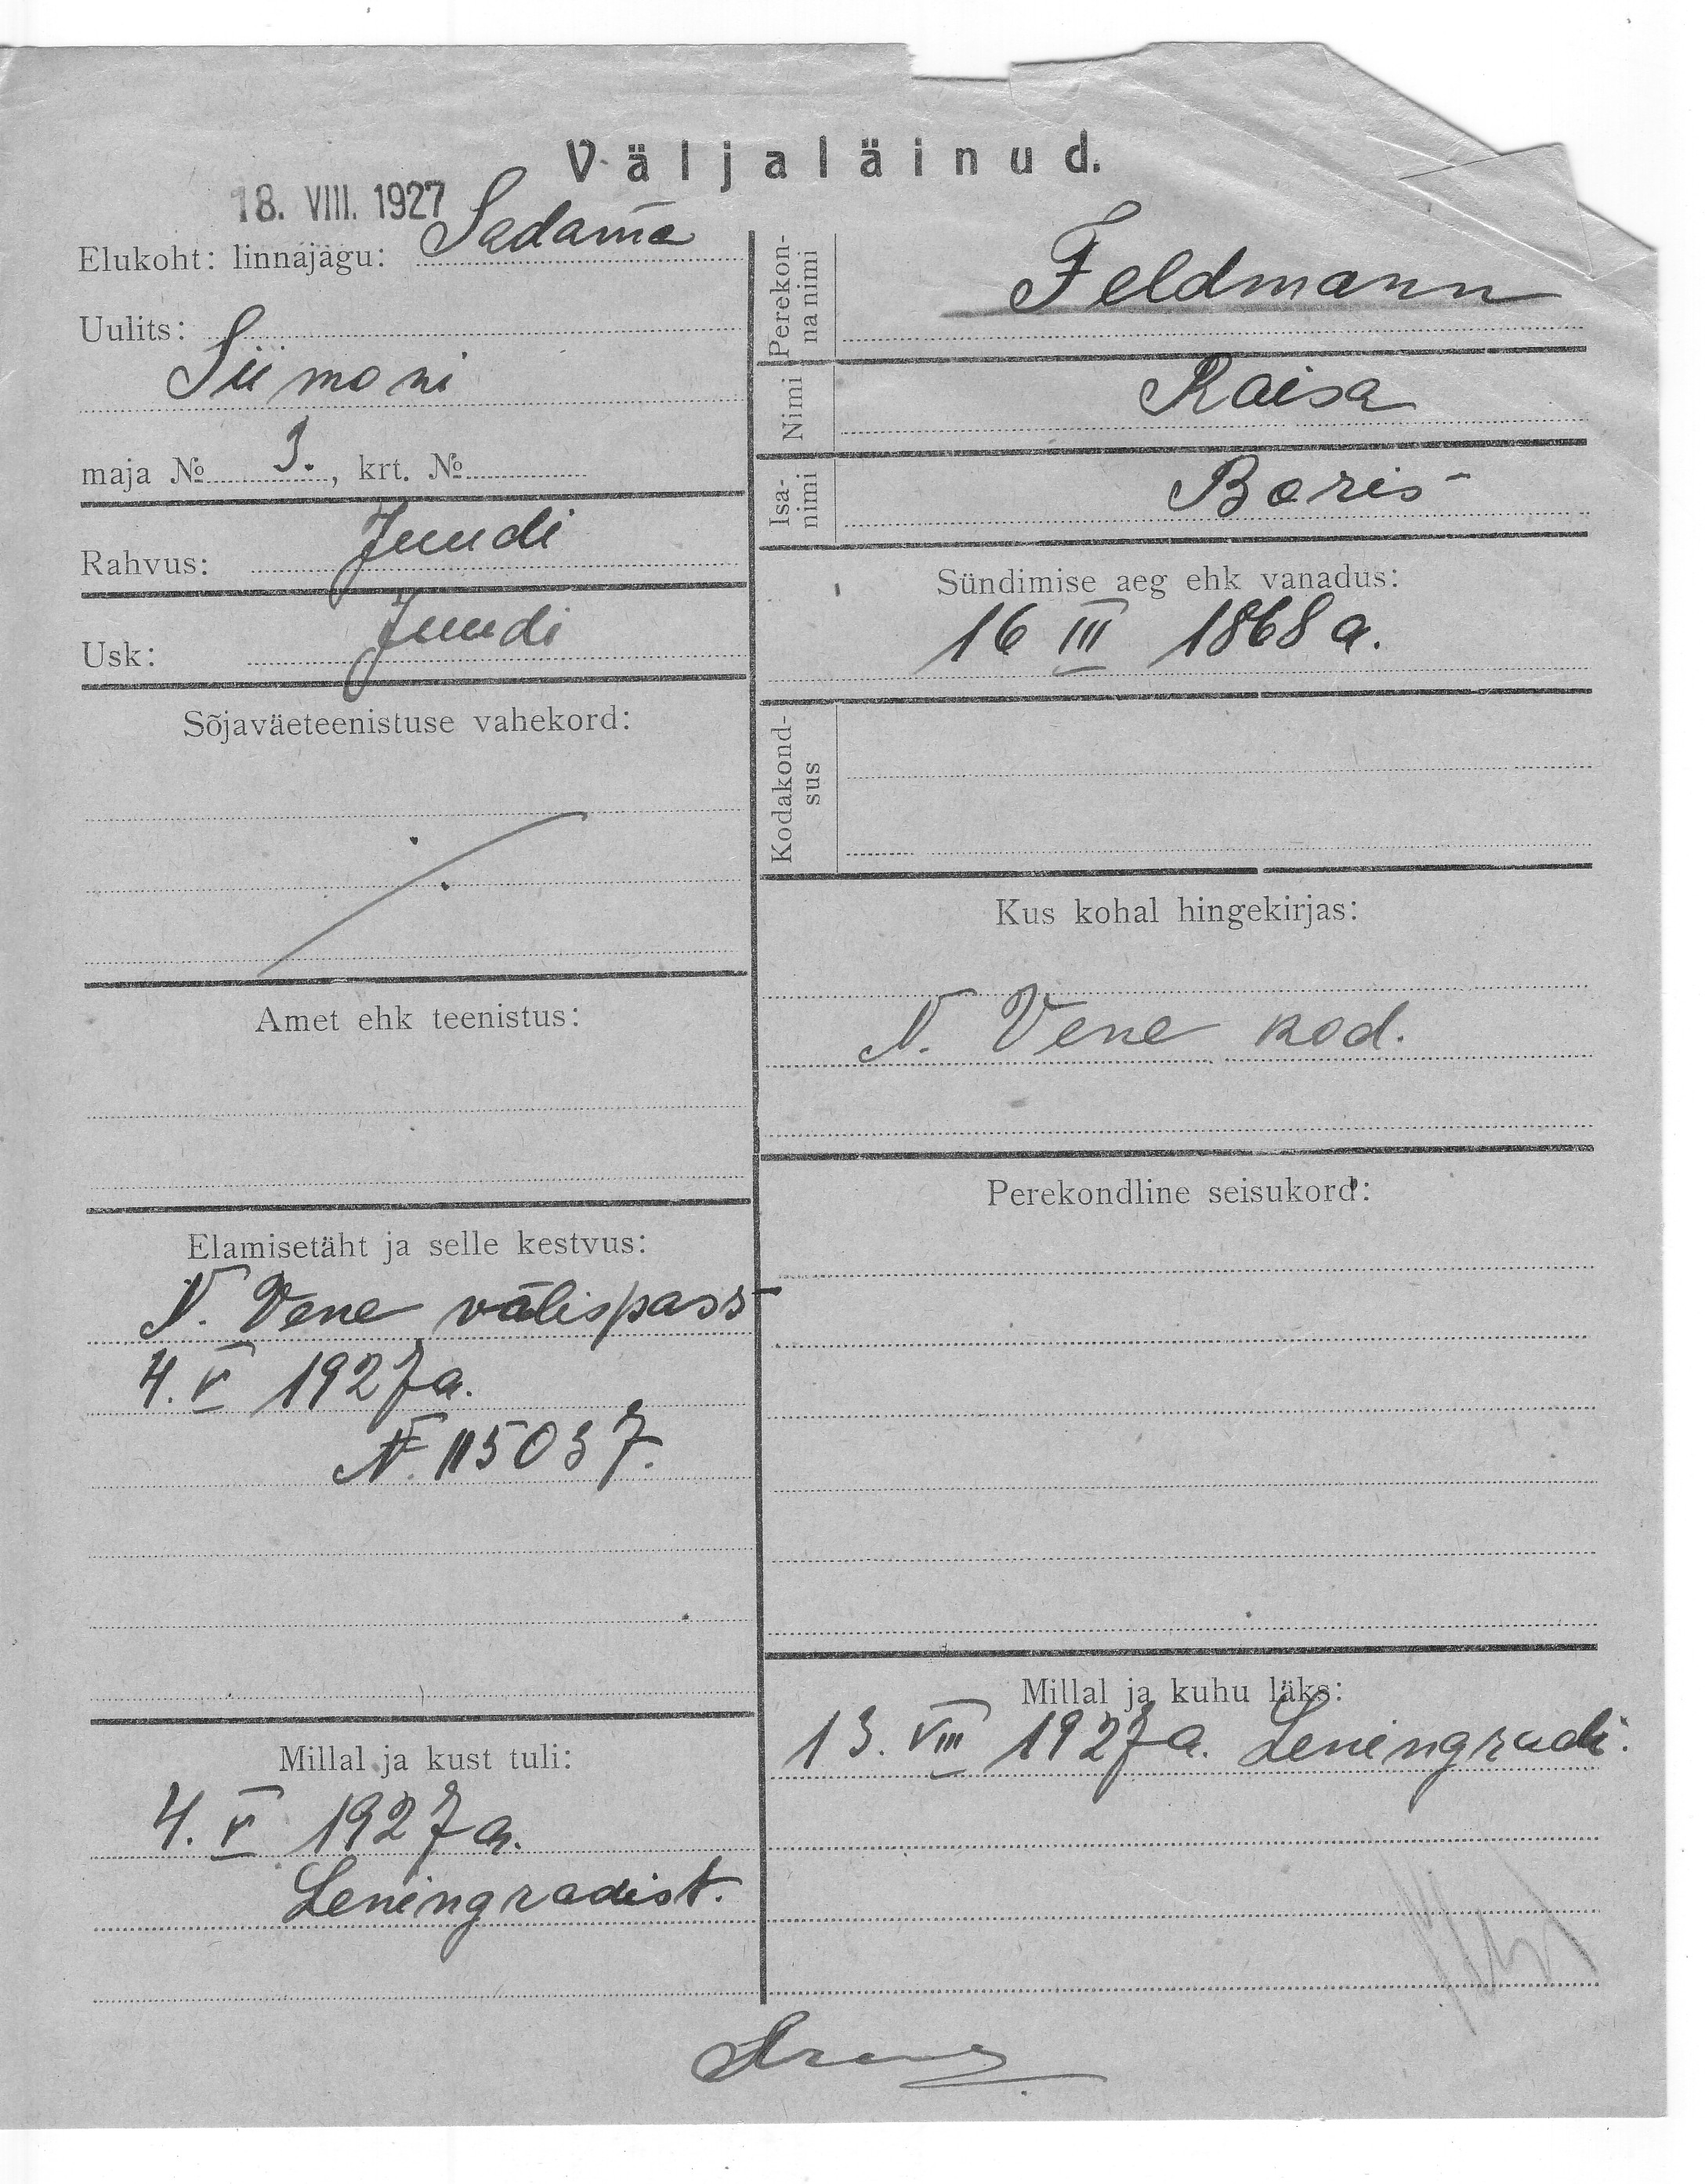 Väljaläinud.
18. VIII. 1927
Elukoht: linnajagu: Sadama
Uulits:
Siimoni
maja № 3., krt. №
Rahvus: Juudi
Usk: Juudi
Sõjaväeteenistuse vahekord:
Amet ehk teenistus:
Elamisetäht ja selle kestvus:
N. Vene välispass
4. V 1927 a.
N. 115037.
Millal ja kust tuli:
4. V 1927 a.
Leningradist.
Perekon-
na nimi
Feldmann
Nimi
Raisa
Isa-
nimi
Boris
Sündimise aeg ehk vanadus:
16 III 1868 a.
Kodakond-
sus
Kus kohal hingekirjas:
N. Vene kod.
Perekondline seisukord:
Millal ja kuhu läks:
13. VIII 1927 a. Leningradi.